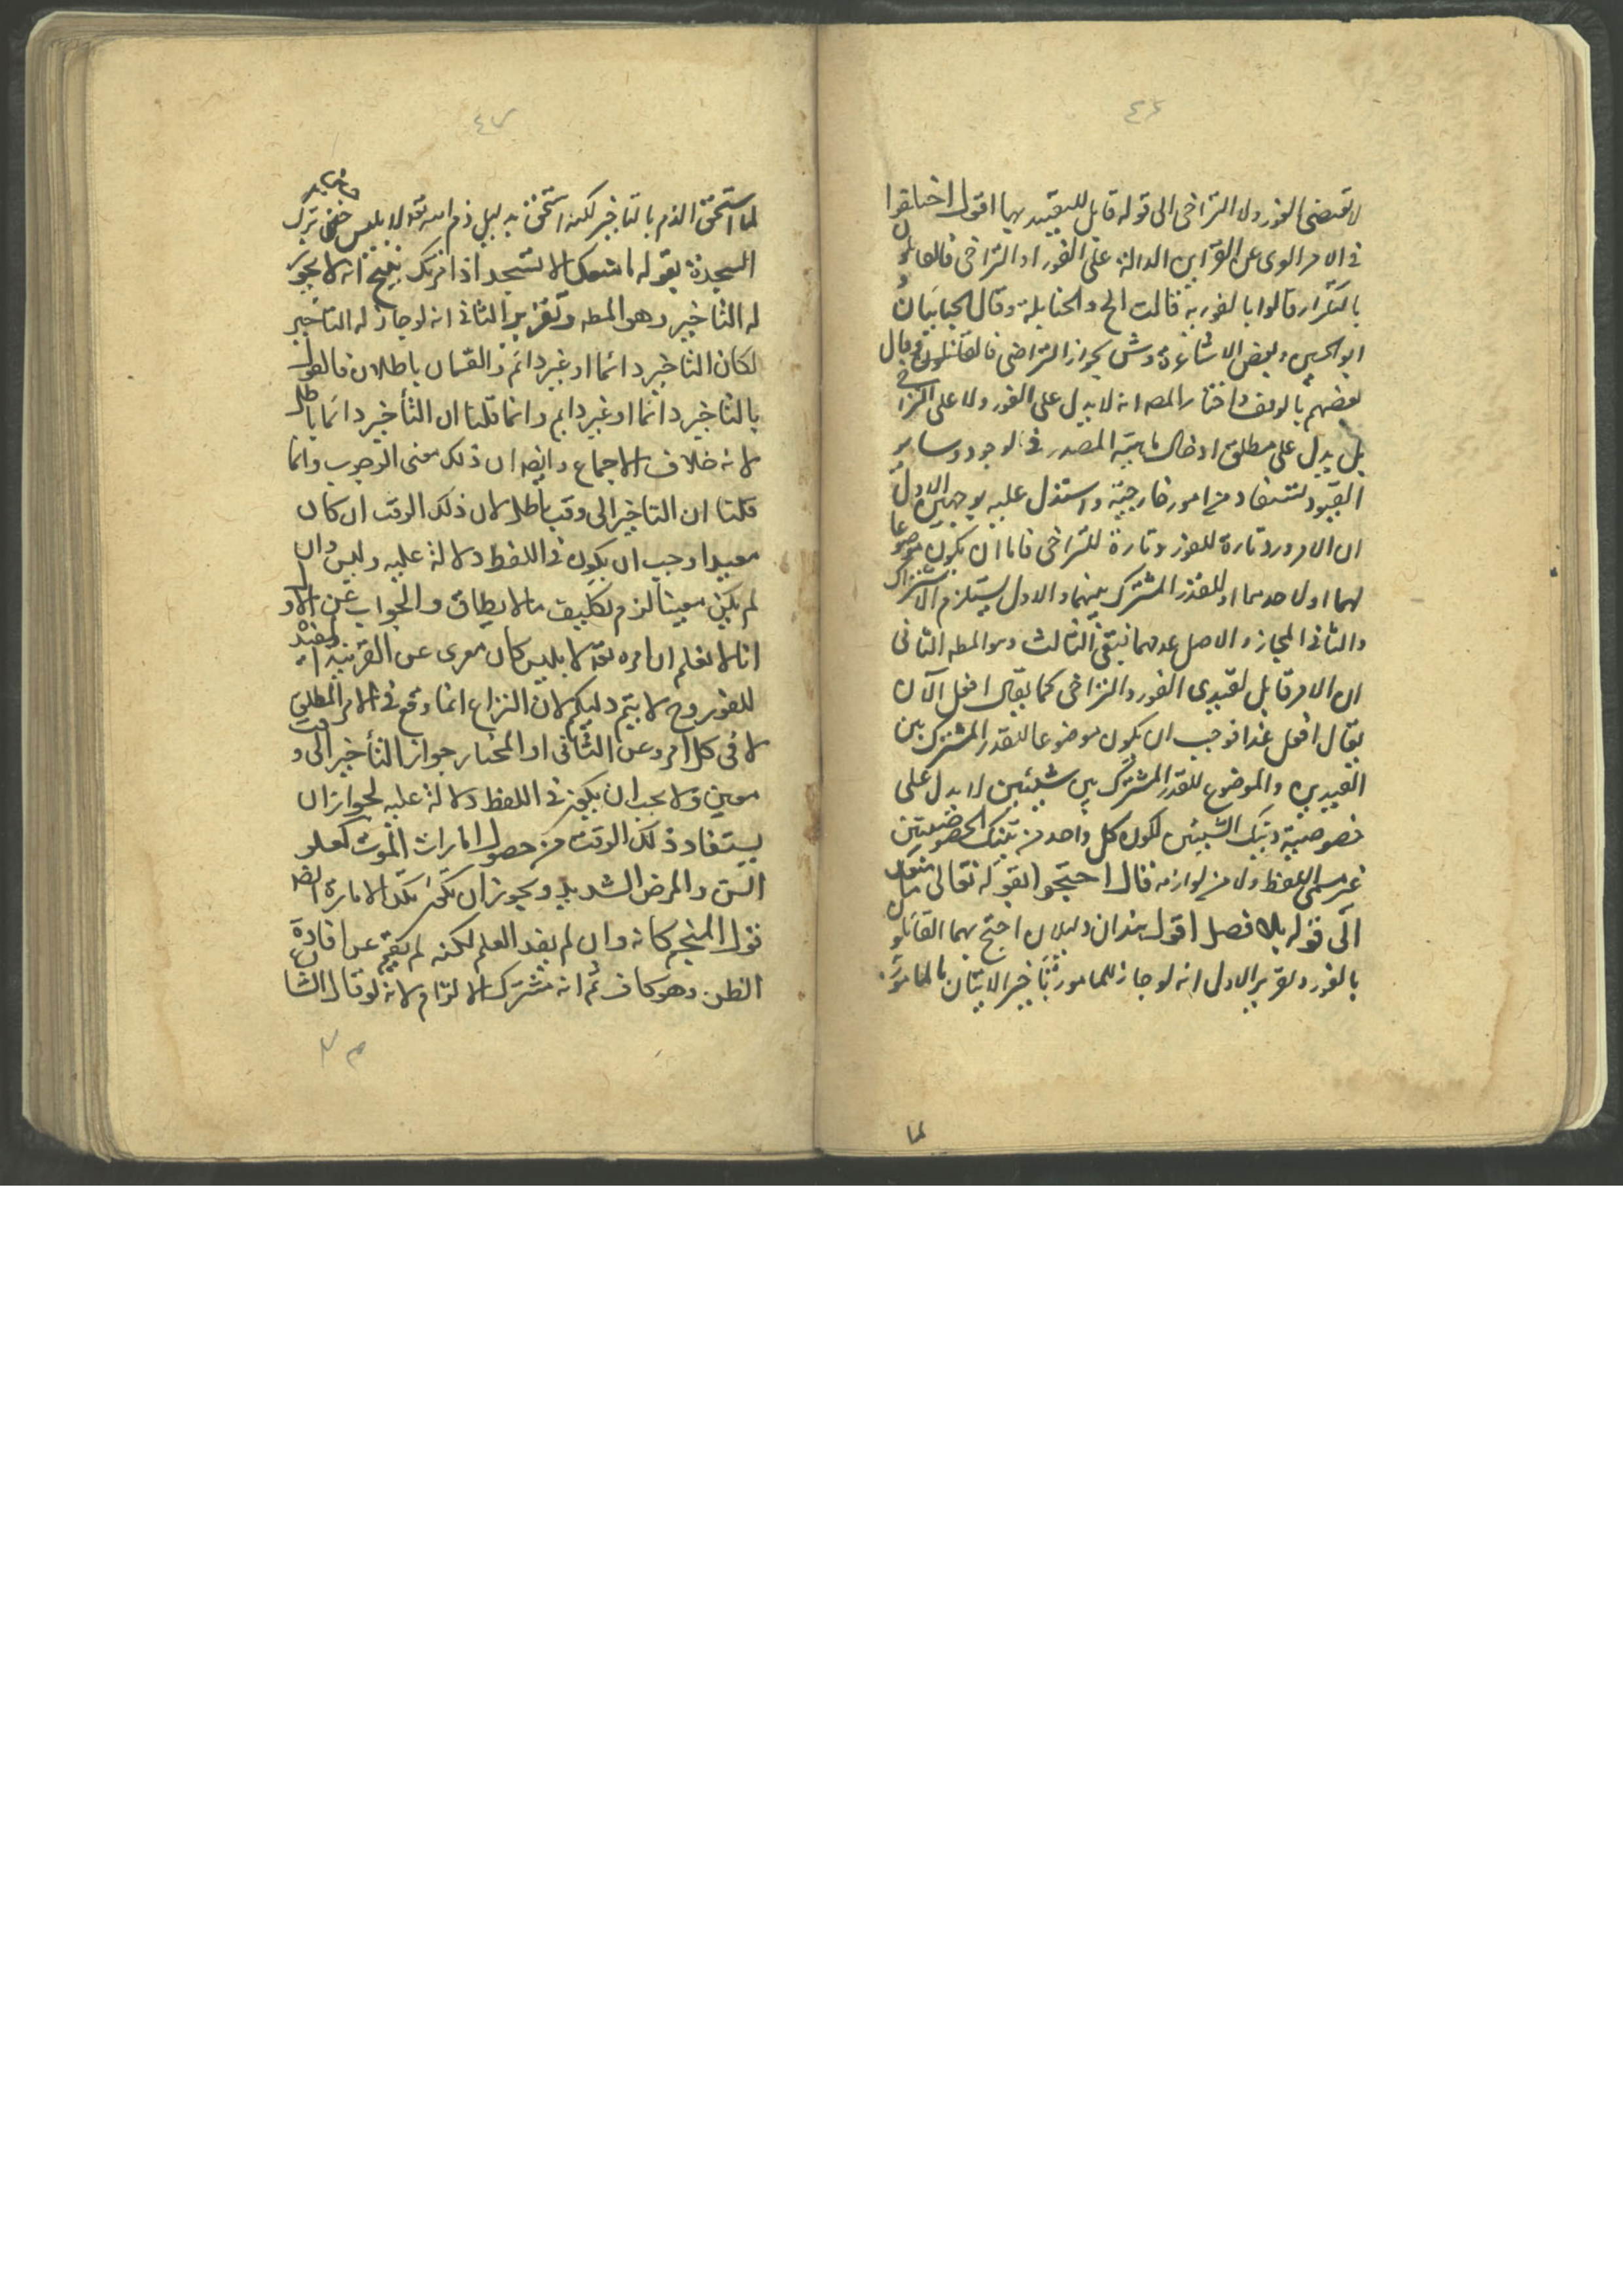 ٤٦
لا تقتضى الفور ولا التراخى الى قوله قابل للتقييد بهما اقول اختلفوا
فى الامر العرى عن القراين الدالة على الفور او التراخى فالقائلون
بالتكرار قالوا بالفورية قالت الح والحنابلة وقال الجبائيان
ابو الحسين وبعض الاشاعرة وش بجواز التراخى فالقائلون وقال
بعضهم بالوقف واختار المصه انه لا يدل على الفور ولا على التراخى
بل يدل على مطلق ادخال ماهية المصدر فى الوجود وساير
القيود تستفاد من امور خارجية واستدل عليه بوجهين الاول
ان الامر ورد تارة للفور وتارة للتراخى فاما ان يكون موضوعا
لهما او لاحدهما او للقدر المشترك بينهما والاول يستلزم الاشتراك
والثانى المجاز والاصل عدمهما فبقى الثالث وهو المطه الثانى
ان الامر قابل لقيدى الفور والتراخى كما يقال افعل الآن
يقال افعل غدا فوجب ان يكون موضوعا للقدر المشترك بين
القيدين والموضوع للقدر المشترك بين شيئين لا يدل على
خصوصية ذينك الشيئين لكون كل واحد من تينك الخصوصيتين
غير مسمى اللفظ ولا من لوازمه قال احتجوا بقوله تعالى ما منعك
الى قوله بلا فصل اقول هذان دليلان احتج بهما القائلون
بالفور وتقرير الاول انه لو جاز للمامور تأخير الاتيان بالمامور
لما
٤٧
لما استحق الذم بالتاخير لكنه استحق بدليل ذم الله تعه لابليس حين ترك
السجدة بقوله ما منعك الا تسجد اذ امرتك فيج انه لا يجوز
له التاخير وهو المطه وتقرير الثانى انه لو جاز له التاخير
لكان التاخير دائما او غير دائم والقسمان باطلان فالقول
بالتاخير دائما او غير دايم وانما قلنا ان التأخير دائما باطل
لانه خلاف الاجماع وايضا ان ذلك معنى الوجوب وانما
قلنا ان التاخير الى وقت باطل لان ذلك الوقت ان كان
معينا وجب ان يكون فى اللفظ دلالة عليه وليس وان
لم يكن معينا لزم تكليف ما لا يطاق والجواب عن الاول
انا لا نعلم ان امره تعه لابليس كان معرى عن القرينة المفيدة
للفور وح لا يتم دليلكم لان النزاع انما وقع فى الامر المطلق
لا فى كل امر وعن الثانى ان المختار جواز التأخير الى وقت
معين ولا يجب ان يكون فى اللفظ دلالة عليه لجواز ان
يستفاد ذلك الوقت من حصول امارات الموت كعلو
السن والمرض الشديد ويجوز ان تكون تلك الامارة ايضا
قول المنجم كانه وان لم يفد العلم لكنه لم يقم عن افادة
الظن وهو كاف ثم انه مشترك الالزام لانه لو قال الشا